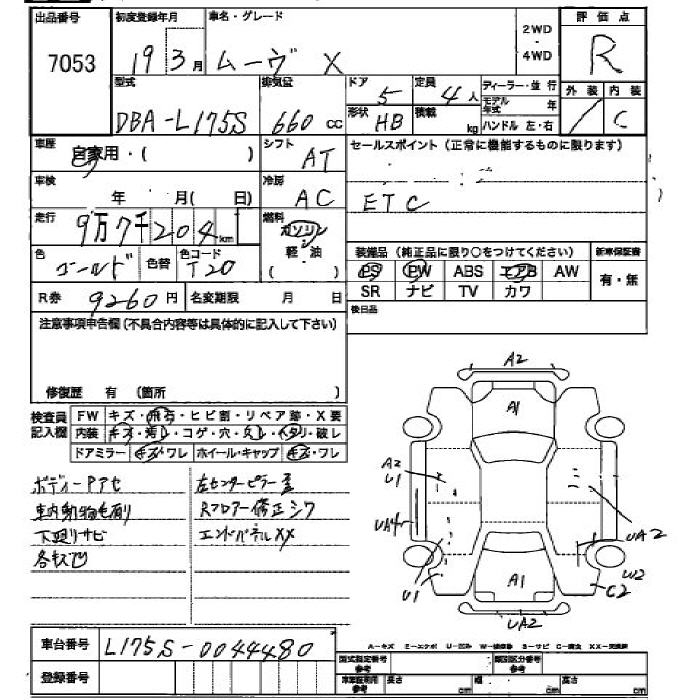 出品番号 初度登録年月 車名・グレード 2WD・4WD 評価点
7053 19 3月 ムーヴ X R
型式 排気量 ドア 定員 ディーラー・並行 外装 内装
DBA-L175S 660cc 5 4人 モデル年式 年 / C
形状 HB 積載 kg ハンドル 左・右
車歴 自家用・( ) シフト AT セールスポイント(正常に機能するものに限ります)
車検 年 月(日) 冷房 AC ETC
走行 9万7千204km 燃料 ガソリン 軽油 ( )
色 ゴールド 色替 色コード T20 装備品(純正品に限り○をつけてください) 新車保証書
PS PW ABS エアB AW 有・無
R券 9260円 名変期限 月 日 SR ナビ TV カワ
注意事項申告欄(不具合内容等は具体的に記入して下さい) 後日品
修復歴 有 (箇所 )
検査員記入欄 FW キズ・飛石・ヒビ割・リペア跡・X要
内装 キズ・汚レ・コゲ・穴・欠レ・ヘタリ・破レ
ドアミラー キズ・ワレ ホイール・キャップ キズ・ワレ
ボディーPアセ 左センターピラー歪
車内動物毛有り Rフロアー修正シワ
下廻リサビ エンドパネルXX
各キズ凹
A2
A1
A2
U1
UA4
UA2
U1
A1
W2
C2
UA2
車台番号 L175S-0044480
A-キズ E-エクボ U-凹み W-補修跡 S-サビ C-腐食 XX-交換済
登録番号
型式指定番号 参考 類別区分番号 参考
車庫証明用 参考 長さ cm 幅 cm 高さ cm